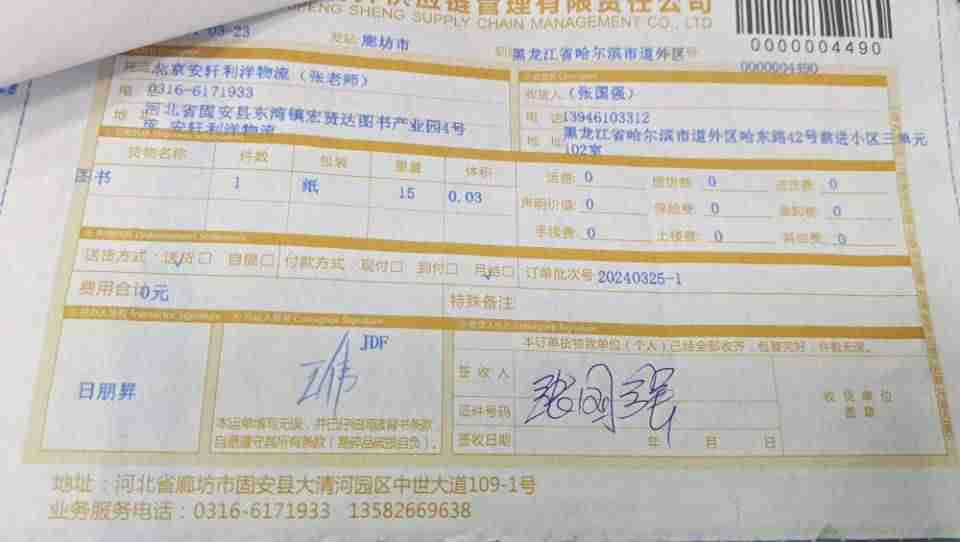 供应链管理有限责任公司
PENG SHENG SUPPLY CHAIN MANAGEMENT CO., LTD
03-23
发站 廊坊市
到 黑龙江省哈尔滨市道外区
0000004490
0000004490
北京安轩利洋物流（张老师）
收货人 （张国强）
电 0316-6171933
电 话 13946103312
地 址 河北省固安县东湾镇宏贤达图书产业园4号
安轩利洋物流
地 址 黑龙江省哈尔滨市道外区哈东路42号前进小区三单元
102室
货物名称 件数 包装 重量 体积
图书 1 纸 15 0.03
运费: 0 0 0
声明价值: 0 保险费: 0 0
手续费: 0 0 其他费: 0
送货方式: 送货□ 自提□ 付款方式: 现付□ 到付□ 月结□ 订单批次号 20240325-1
费用合计 0元
特殊备注
本订单货物我单位（个人）已经全部收齐，包装完好，件数无误。
日朋昇
王伟
JDF
签 收 人 张国强
收 货 单 位
盖 章
证件号码
签收日期 年 月 日
地址：河北省廊坊市固安县大清河园区中世大道109-1号
业务服务电话：0316-6171933 13582669638